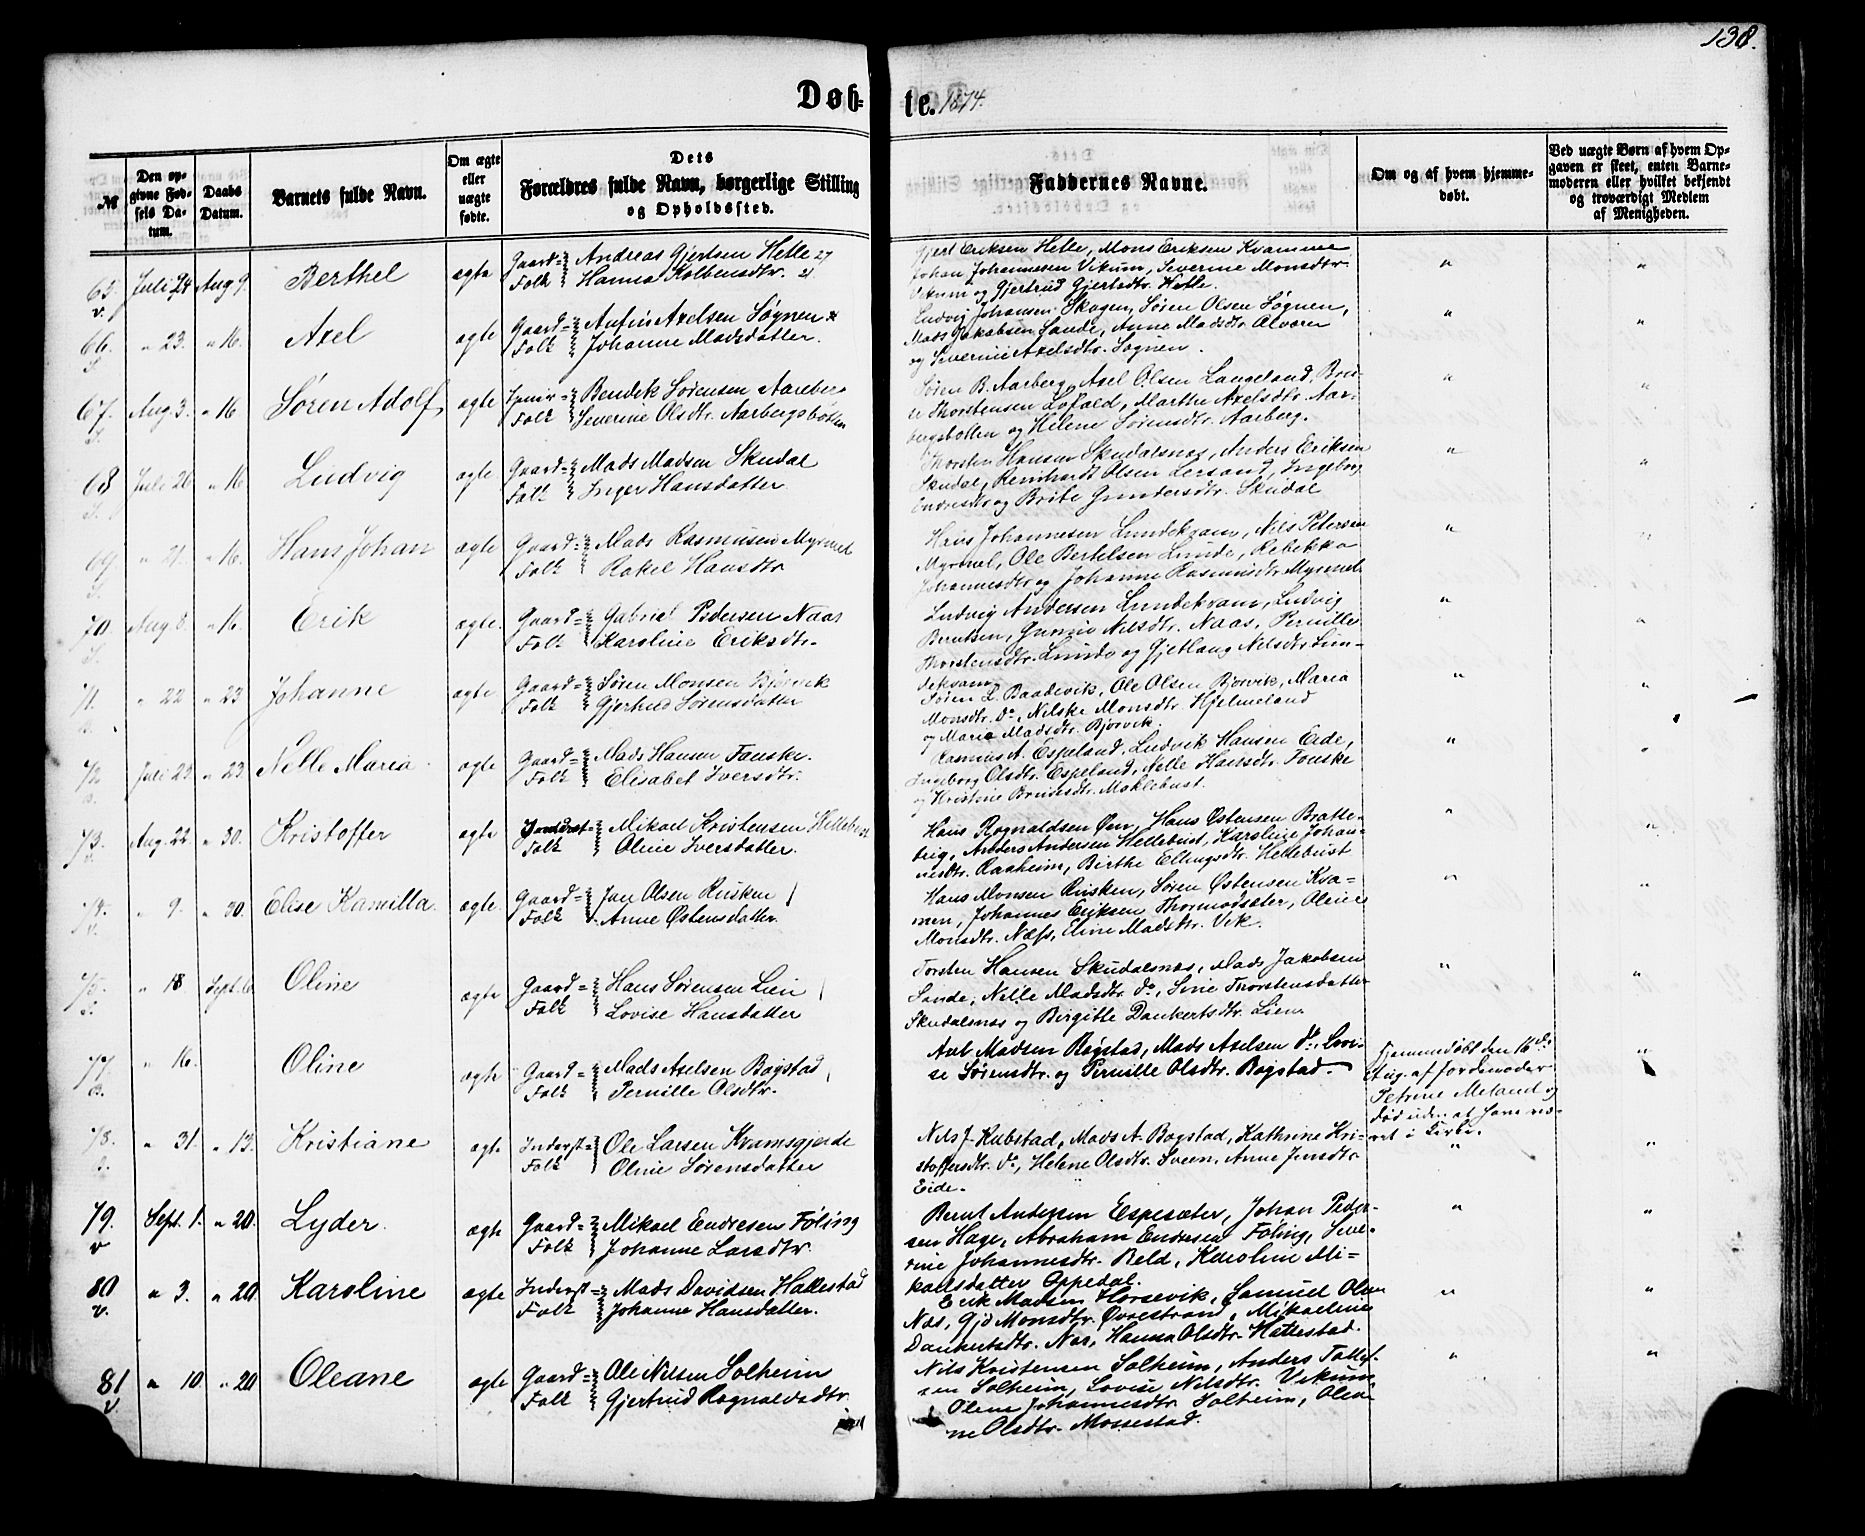 138.
Døb=te. 1874.
№
Den opgivne Fødsels Datum.
Daabs Datum.
Barnets fulde Navn.
Om ægte eller uægte fødte.
Dets Forældres fulde Navn, borgerlige Stilling og Opholdssted.
Faddernes Navne.
Om og af hvem hjemmedøbt.
Ved uægte Børn af hvem Opgaven er skeet, enten Barnemoderen eller hvilket bekjendt og troværdigt Medlem af Menigheden.
65. v. Juli 24 Aug 9. Berthel ægte Gaard= Folk Andreas Gjertsen Helle 27
Hanna Kolbensdtr. 21
Gjert Eriksen Helle, Mons Eriksen Kvamme
Johan Johannesen Vikum, Severine Monsdtr.
Vikum og Gjertrud Gjertsdtr. Helle. " "
66. " 23. " 16. Axel ægte Gaard= Folk Anfin Axelsen Søgnen
Johanne Madsdatter.
Ludvig Johansen Skagen, Søren Olsen Søgnen,
Mads Jakobsen Sande, Anne Madsdtr. Alvøren
og Severine Axelsdtr. Søgnen. " "
67. Aug. 3. " 16 Søren Adolf ægte Folk Bendik Sørensen Aareberg
Severine Olsdtr. Aarbergsbotten
Søren B. Aarberg, Axel Olsen Langeland, Bri-
Thorstensen Løfald, Marthe Axelsdtr. Aar-
bergsbotten og Helene Sørensdtr. Aarberg. " "
68 Juli 26 " 16 Ludvig ægte Gaard= Folk Mads Madsen Skudal
Inger Hansdatter
Thorsten Hansen Skudalsnæs, Anders Eriksen
Skudal, Reinhardt Olsen Lersand, Ingeborg
og Brite Gundersdtr. Skudal " "
69 " 21. " 16. Hans Johan ægte Gaard= Folk Mads Rasmusen Myrmel
Rakel Hansdtr
Hans Johannesen Lundekvam, Nils Petersen
Myrmel, Ole Bertelsen Lunde, Rebekka
Johannesdtr og Johanne Rasmusdtr. Myrmel. " "
70. Aug. 8. " 16. Erik ægte. Gaard= Folk Gabriel Pedersen Naas
Karoline Eriksdtr.
Ludvig Andersen Lundekvam, Ludvig
Berntsen, Nilsdtr. Naas, Pernille
Thorstensdtr. Lunde og Gjetlaug Nilsdtr. Lun-
dekvam. " "
71. " 22 " 23 Johanne ægte Gaard= Folk Søren Monsen Bjørvik
Gjertrud Sørensdatter
Søren L. Baadevik, Ole Olsen Bjørvik, Maria
Monsdtr. Do, Nilske Monsdtr. Hjelmeland
og Marie Madsdtr. Bjørvik. " "
72 Juli 23 " 23. Nelle Maria ægte Gaard= Folk Mads Hansen Fonske.
Elisabet Iversdtr.
Rasmus A. Espeland, Ludvik Hansen Eide,
Ingeborg Olsdtr. Espeland, Nelle Hansdtr. Fonske
og Kristine Madsdtr. Moklebust. " "
73. Aug. 22. " 30. Kristoffer ægte Inderst= Folk Mikael Kristensen Hellebust
Oline Iversdatter.
Hans Rognaldsen Øen, Hans Østensen Bratte-
big, Anders Andersen Hellebust, Karoline Johan-
nesdtr. Raaheim, Birthe Ellingsdtr. Hellebust " "
74. v. " 9. " 30. Elise Kamilla. ægte. Gaard= Folk Jan Olsen Risken
Anne Østensdatter.
Hans Monsen Risken, Søren Østensen Kva-
men, Johannes Eriksen Thormodsæter, Oline
Monsdtr. Næss, Eline Madsdtr. Vik. " "
75. " 18 Sept. 6 Oline ægte Gaard= Folk Hans Sørensen Lien
Lovise Hansdatter
Torsten Hansen Skudalsnæs, Mads Jakobsen
Sande, Nelle Madsdtr. Do, Sine Thorstensdatter
Skudalsnæs og Birgitte Dankertsdtr. Lien. " "
77. " 16. Oline ægte Gaard= Folk Mads Axelsen Bogstad
Pernille Olsdtr.
Axel Madsen Bogstad, Mads Axelsen Do, Lovi-
se Sørensdtr. og Pernille Olsdtr. Bogstad.
Hjemmedøbt den 16de
Aug. af Jordemoder
Petrine Meland og
død uden at have væ-
ret i Kirke. "
78. " 31. " 13. Kristiane ægte Inderst= Folk Ole Larsen Kvamsgjerde
Oline Sørensdatter
Nels J. Rubstad, Mads A. Bogstad, Kathrine Kri-
stoffersdtr. Do, Helene Olsdtr. Sveen, Anne Jensdtr
Eide. " "
79. v Sept. 1. " 20. Lyder. ægte Gaard= Folk Mikael Endresen Føling
Johanne Larsdtr.
Bernt Andersen Espesæter, Johan Peder-
sen Hage, Abraham Endresen Føling, Seve-
rine Johannesdtr. Beld, Karoline Mi-
kalsdatter Oppedal. " "
80 v. " 3. " 20. Karoline ægte Inderst= Folk Mads Davidsen Hattestad
Johanne Hansdatter.
Erik Madsen Horsevik, Samuel Olsen
Næs, Monsdtr. Øvrestrand, Mikaeline
Dankertsdtr. Nas, Hanna Olsdtr. Hattestad. " "
81 v " 10 " 20 Oleane ægte Gaard= Folk Ole Nilsen Solheim
Gjertrud Rognaldsdtr.
Nils Kristensen Solheim, Anders Tollef-
sen Solheim, Lovise Nilsdtr. Vikum
Oline Johannesdtr. Solheim, Olea-
ne Olsdtr. Mossestad. " "